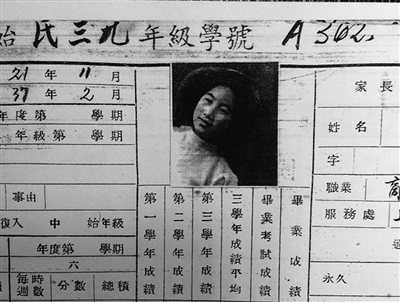 始 民三九 年級學號 A302
21 年 11 月
37 年 2 月
年度第 學期
年級第 學期
事由
復入 中 始年級
年度第 學期
六
每時週數 分數 總積
第一學年成績
第二學年成績
第三學年成績
三學年成績平均
畢業考試成績
畢業成績
家長
姓名
字
職業 商
服務處
永久